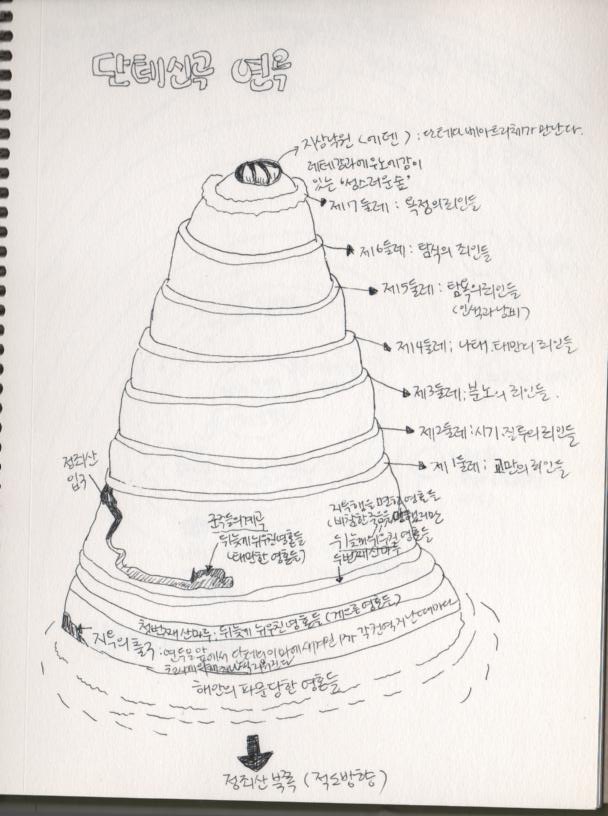 단테신곡 연옥
지상낙원 (에덴) : 단테와 베아트리체가 만난다.
레테강과 에우노에강이
있는 '성스러운 숲'
제7둘레 : 욕정의 죄인들
제6둘레 : 탐식의 죄인들
제5둘레 : 탐욕의 죄인들
(인색과 낭비)
제4둘레 ; 나태. 태만의 죄인들
제3둘레 ; 분노의 죄인들.
제2둘레 : 시기. 질투의 죄인들
제1둘레 ; 교만의 죄인들
정죄산
입구
군주들의 계곡
뒤늦게 뉘우친 영혼들
(태만한 영혼들)
지옥행을 면한 영혼들
(비참한 죽음을 당했지만
뒤늦게 뉘우친 영혼들
두번째 산마루
첫번째 산마루 : 뒤늦게 뉘우친 영혼들 (게으른 영혼들)
지옥의 출구 : 연옥문 앞에서 단테의 이마에 새겨진 P가 각 권역 지난 때마다
해안의 파문당한 영혼들
정죄산 북쪽 (적도방향)